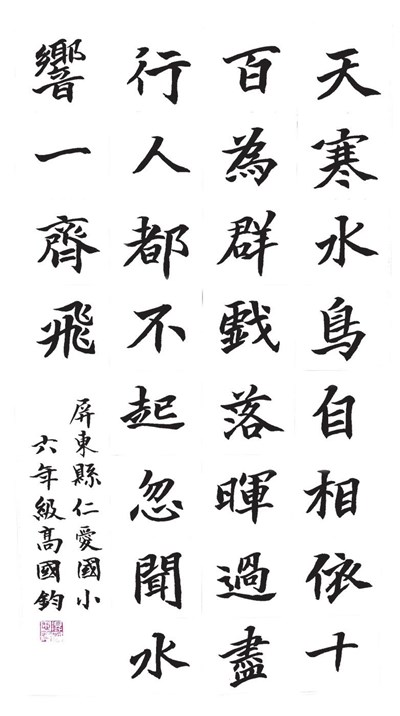 天寒水鳥自相依十
百為群戲落暉過盡
行人都不起忽聞水
響一齊飛
屏東縣仁愛國小
六年級高國鈞